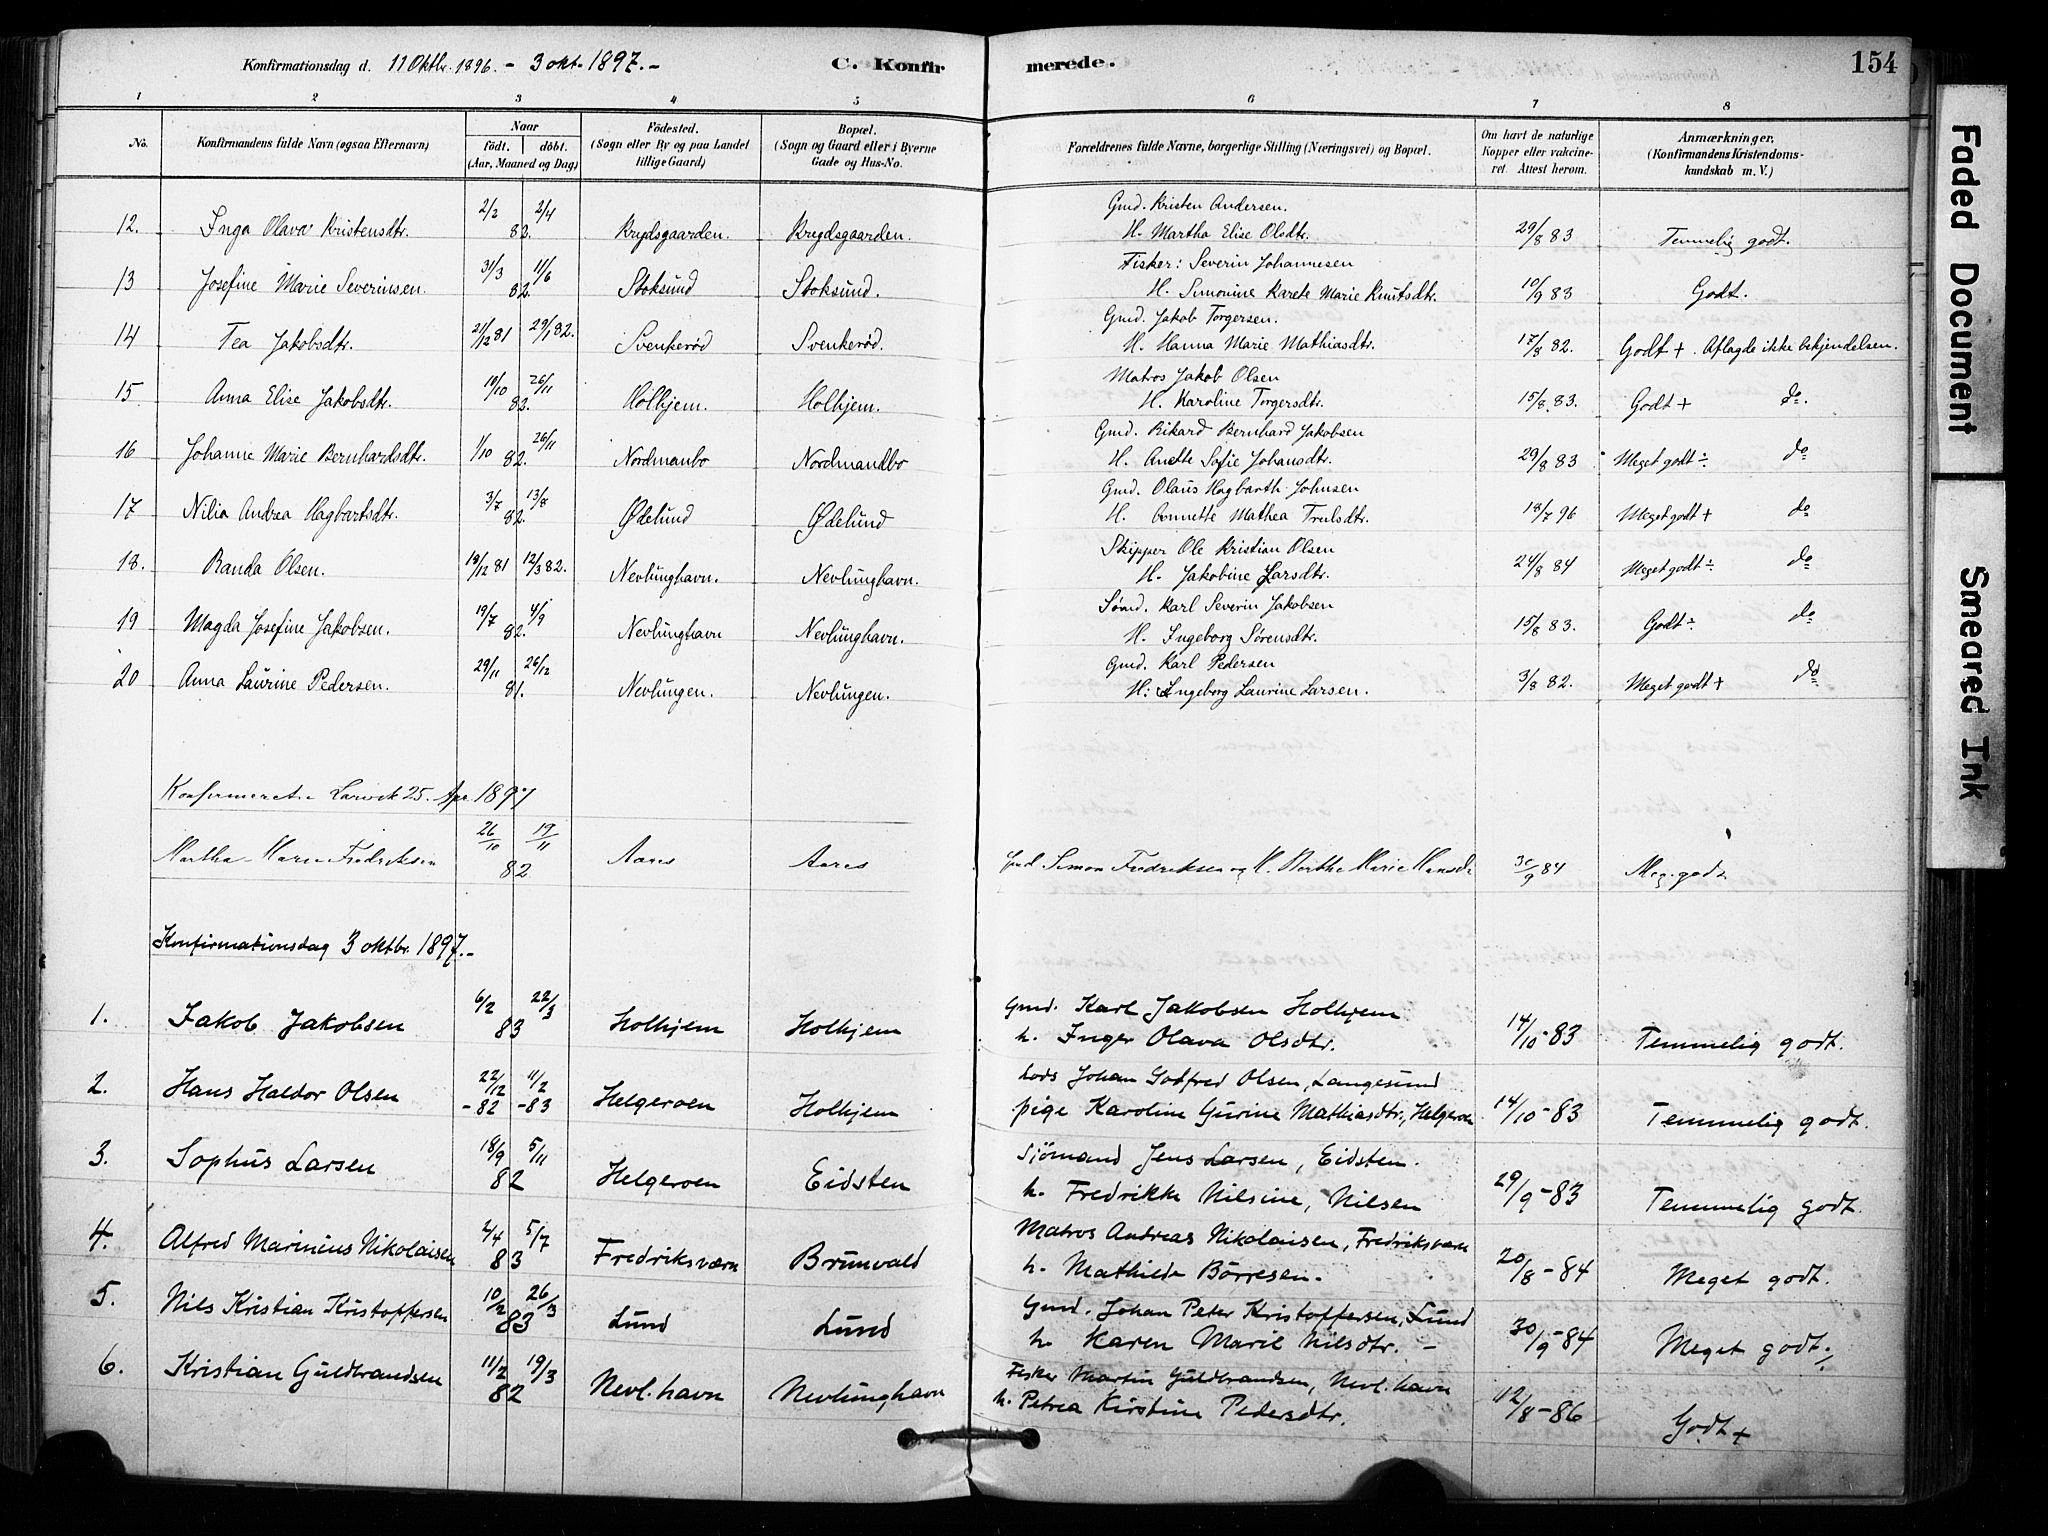 Konfirmationsdag d. 11 Oktbr. 1896. - 3 okt. 1897. -
C. Konfirmerede.
154
1 2 3 4 5 6 7 8
No. Konfirmandens fulde Navn (ogsaa Efternavn) Naar födt. döbt. (Aar, Maaned og Dag) Födested. (Sogn eller By og paa Landet tillige Gaard) Bopæl. (Sogn og Gaard eller i Byerne Gade og Hus-No. Forældrenes fulde Navne, borgerlige Stilling (Næringsvei) og Bopæl. Om havt de naturlige Kopper eller vakcineret. Attest herom. Anmærkninger. (Konfirmandens Kristendomskundskab m. V.)
12. Inga Olava Kristensdtr. 2/2 2/4 82. Krydsgaarden. Krydsgaarden. Gmd. Kristen Andersen. H. Martha Elise Olsdtr. 29/8 83 Temmelig godt.
13 Josefine Marie Severinsen 31/3 11/6 82. Stoksund Stoksund. Fisker: Severin Johannesen H. Simonine Karete Marie Knutsdtr. 10/9 83 Godt.
14 Tea Jakobsdtr. 21/12 81 29/1 82. Svenkerød Svenkerød. Gmd. Jakob Torgersen. H. Hanna Marie Mathiasdtr. 17/8 82. Godt + Aflagde ikke bekjendelsen.
15 Anna Elise Jakobsdtr. 10/10 26/11 82. Holhjem. Holhjem. Matros Jakob Olsen H. Karoline Torgersdtr. 15/8 83. Godt + do.
16 Johanne Marie Bernhardsdtr. 1/10 26/11 82. Nordmanbo Nordmandbo Gmd. Rikard Bernhard Jakobsen H. Anette Sofie Johansdtr. 29/8 83 Meget godt ÷ do
17 Nilia Andrea Hagbartsdtr. 3/7 13/8 82. Ødelund Ødelund Gmd. Olaus Hagbarth Johnsen H. Annette Mathea Trulsdtr. 18/7 96 Meget godt + do
18. Randa Olsen. 18/12 81 12/3 82. Nevlunghavn. Nevlunghavn. Skipper Ole Kristian Olsen H. Jakobine Larsdtr. 24/8 84 Meget godt ÷ do
19 Magda Josefine Jakobsen. 19/7 4/9 82. Nevlunghavn Nevlunghavn. Sømd. Karl Severin Jakobsen H. Ingeborg Sørensdtr. 15/8 83. Godt ÷ do
20 Anna Laurine Pedersen. 29/11 26/12 81. Nevlungen. Nevlungen. Gmd. Karl Pedersen H: Ingeborg Laurine Larsen. 3/8 82. Meget godt + do
Konfirmeret i Larvik 25. Apr 1897
Martha Marie Fredriksen 26/10 19/11 82 Aares Aares Gmd. Simon Fredriksen og H. Berthe Marie Hansdr 30/9 84 Meg. godt
Konfirmationsdag 3 oktbr. 1897. -
1. Jakob Jakobsen 6/2 22/3 83 Holhjem Holhjem Gmd. Karl Jakobsen Holhjem h. Inger Olava Olsdtr. 14/10-83 Temmelig godt.
2. Hans Haldor Olsen 22/12-82 11/2-83 Helgeroen Holhjem Lods Johan Godfred Olsen, Langesund pige Karoline Gurine Mathiasdtr., Helgeroen 14/10-83 Temmelig godt.
3. Sophus Larsen 18/9 5/11 82 Helgeroen Eidsten Sjömand Jens Larsen, Eidsten. h. Fredrikke Nilsine, Nilsen 29/9-83 Temmelig godt.
4. Alfred Marinius Nikolaisen 2/4 5/7 83 Fredriksværn Brunvald Matros Andreas Nikolaisen, Fredriksværn h. Mathilde Börresen. 20/8-84 Meget godt.
5. Nils Kristian Kristoffersen 10/2 26/3 83 Lund Lund Gmd. Johan Peter Kristoffersen, Lund h. Karen Marie Nilsdtr. - 30/9-84 Meget godt ÷
6. Kristian Guldbrandsen 11/2 19/3 82 Nevl. havn Nevlunghavn Fisker Martin Guldbrandsen, Nevl. havn h. Petrea Kirstine Pedersdtr. 12/8-86 Godt +
Faded Document
Smeared Ink